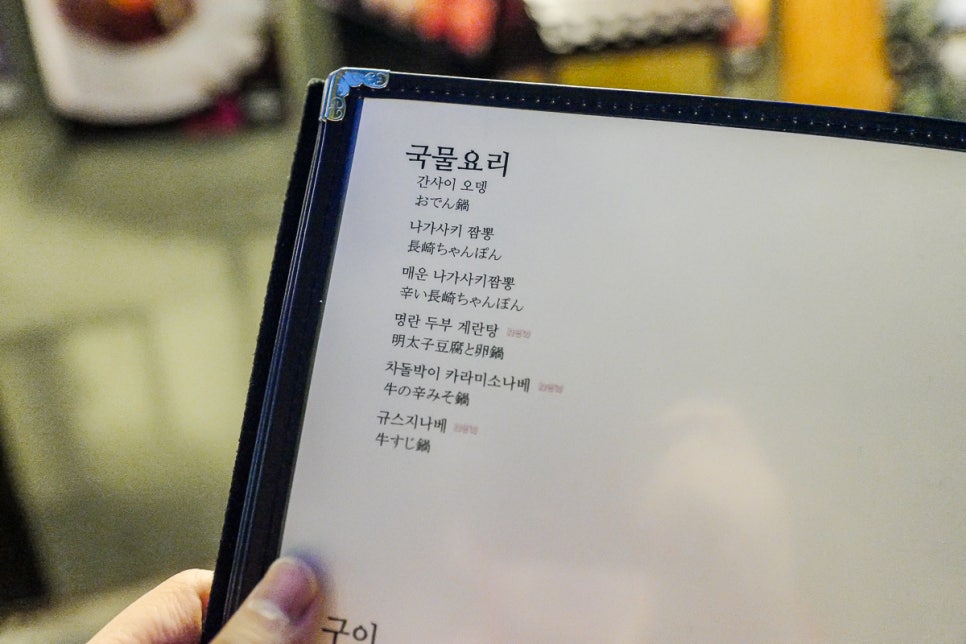 국물요리
간사이 오뎅
おでん鍋
나가사키 짬뽕
長崎ちゃんぽん
매운 나가사키짬뽕
辛い長崎ちゃんぽん
명란 두부 계란탕
明太子豆腐と卵鍋
차돌박이 카라미소나베
牛の辛みそ鍋
규스지나베
牛すじ鍋
구이